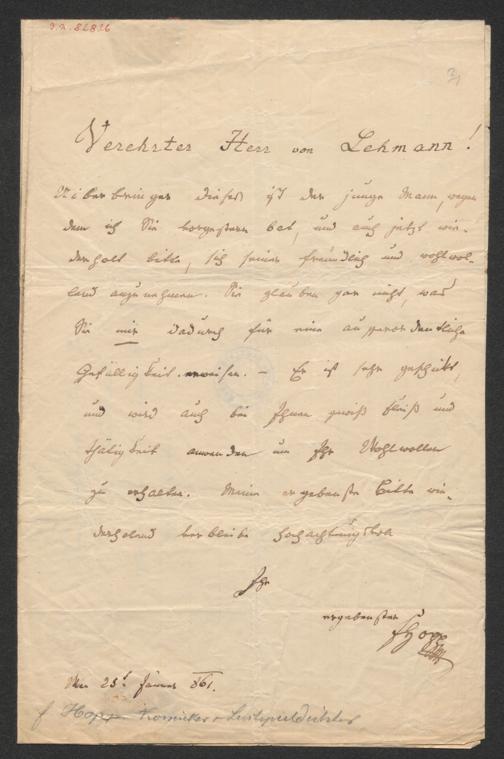 I.N. 82826
Verehrter Herr von Lehmann!
Uiberbringer dieses ist der junge Mann, wegen
dem ich Sie vorgestern bat, und auch jetzt wie-
derholt bitte, sich seiner freundlich und wohlwol-
lend anzunehmen. Sie glauben gar nicht, was
Sie mir dadurch für eine ausserordentliche
Gefälligkeit erweisen. – Er ist sehr geschickt,
und wird auch bei Ihnen gewiß Fleiß und
Thätigkeit anwenden um Ihr Wohlwollen
zu erhalten. Meine ergebenste Bitte wie-
derholend verbleibe hochachtungsvoll
Ihr
ergebenster
FHopp
Wien 25t Jänner 861.
f Hopp Komiker & Lustspieldichter